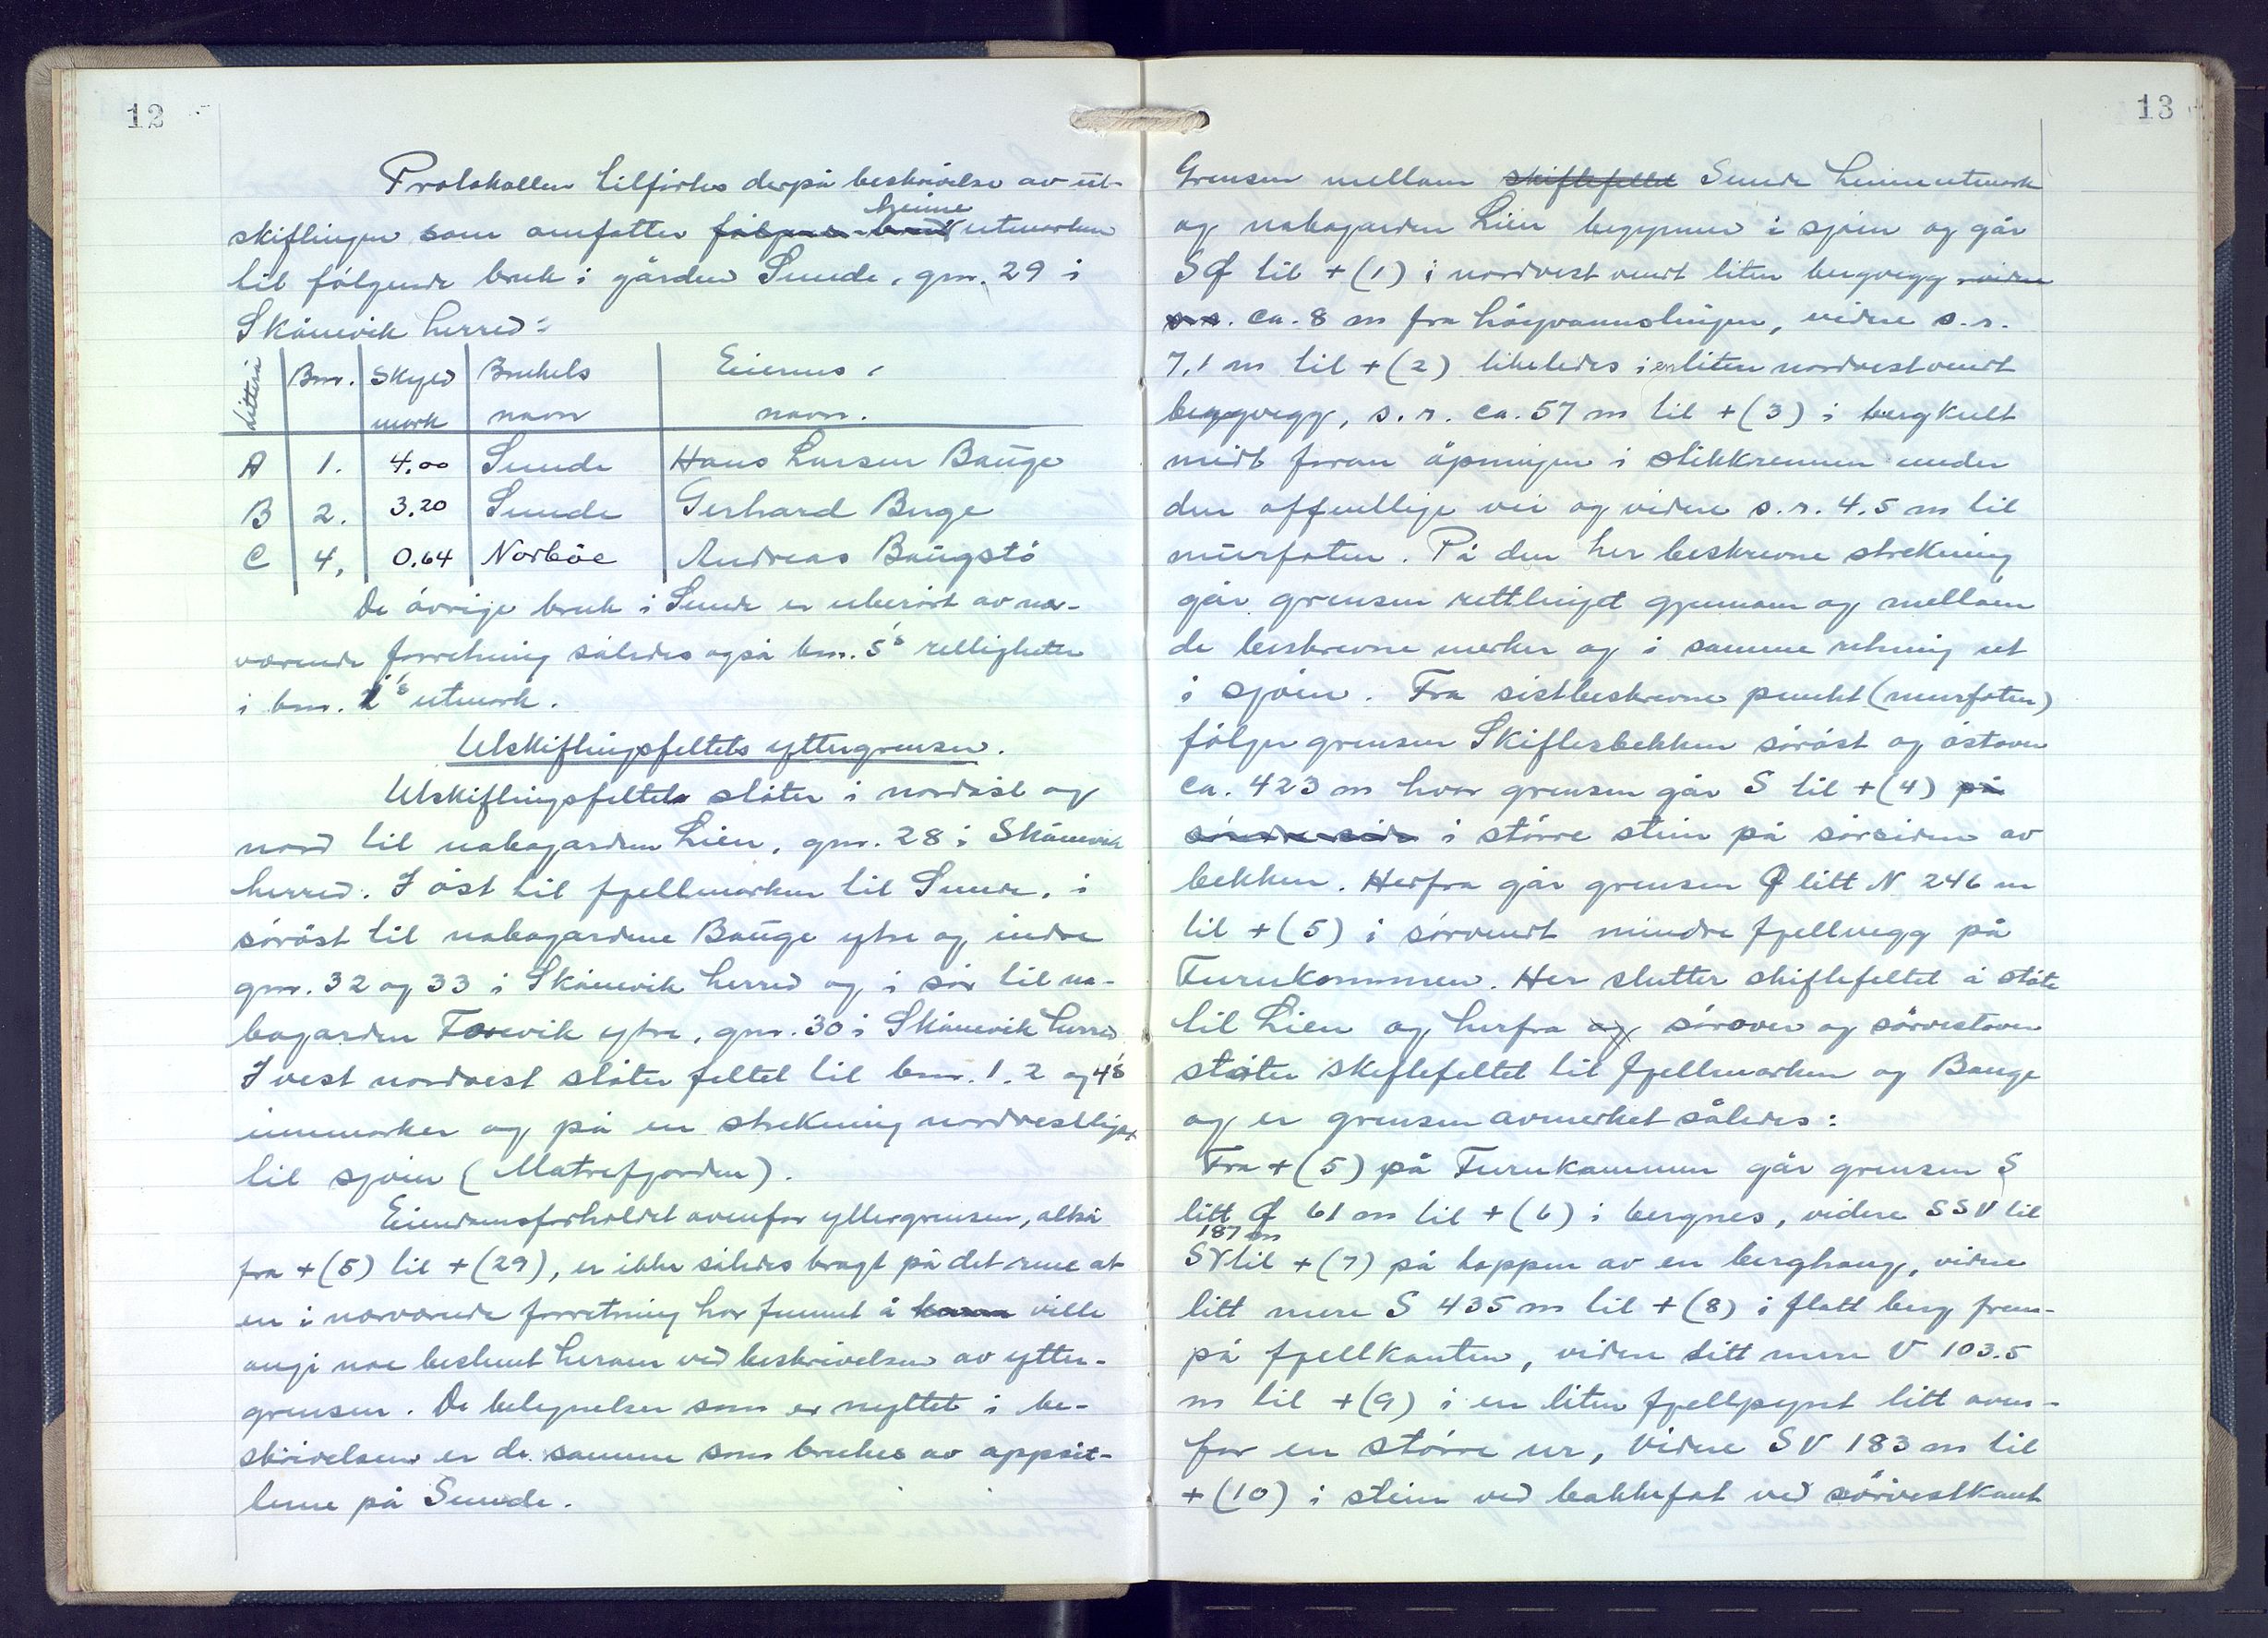 12
Protokollen tilførtes derpå beskrivelse av ut-
skiftingen som omfatter følgende bruk heime utmarken
til følgende bruk i gården Sunde, gnr. 29 i
Skånevik herred:
Littera Bnr. Skyld mark Brukets navn Eierens navn.
A 1. 4.00 Sunde Hans Larsen Bauge
B 2. 3.20 Sunde Gerhard Buge
C 4, 0.64 Norbøe Andreas Baugstø
De øvrige bruk i Sunde er uberørt av nær-
værende forretning således også bnr. 5's rettigheter
i bnr. 2's utmark.
Utskiftingsfeltets yttergrenser.
Utskiftingsfeltet støter i nordøst og
nord til nabogarden Lien, gnr. 28 i Skånevik
herred. I øst til fjellmarken til Sunde, i
sørøst til nabogardene Bauge ytre og indre
gnr. 32 og 33 i Skånevik herred og i sør til na-
bogarden Tosevik ytre, gnr. 30 i Skånevik herred
I vest nordvest støter feltet til bnr. 1. 2 og 4's
innmarker og på en strekning nordvestligst
til sjøen (Matrefjorden).
Eiendomsforholdet ovenfor yttergrensen, altså
fra +(5) til +(29), er ikke således bragt på det rene at
en i nærværende forretning har funnet å kunne ville
angi noe bestemt herom ved beskrivelsen av ytter-
grensen. De betegnelser som er nyttet i be-
skrivelsen er de samme som brukes av oppsit-
terne på Sunde.
13
Grensen mellom skiftefeltet Sunde heimeutmark
og nabogarden Lien begynner i sjøen og går
SØ til +(1) i nordvest vendt liten bergvegg videre
s.r. ca. 8 m fra høyvannslinjen, videre s.r.
7,1 m til +(2) likeledes i en liten nordvestvendt
bergvegg, s.r. ca. 57 m til +(3) i bergkult
midt foran åpningen i stikkrennen under
den offentlige vei og videre s.r. 4.5 m til
murfoten. På den her beskrevne strekning
går grensen rettlinjet gjennom og mellom
de beskrevne merker og i samme retning ut
i sjøen. Fra sistbeskrevne punkt (murfoten)
følger grensen Skiftesbekken sørøst og østover
ca. 423 m hvor grensen går S til +(4) på
søndre side i større stein på sørsiden av
bekken. Herfra går grensen Ø litt N 246 m
til +(5) i sørvendt mindre fjellvegg på
Furukammen. Her slutter skiftefeltet å støte
til Lien og herfra og sørover og sørvestover
støter skiftefeltet til fjellmarken og Bauge
og er grensen avmerket således:
Fra +(5) på Furukammen går grensen S
litt Ø 61 m til +(6) i bergnes, videre SSV til
187 m
SV til +(7) på toppen av en berghaug, videre
litt mere S 435 m til +(8) i flatt berg frem-
på fjellkanten, videre litt mere V 103.5
m til +(9) i en liten fjellpynt litt oven-
for en større ur, videre SV 183 m til
+(10) i stein ved bakkefot ved sørvestkant